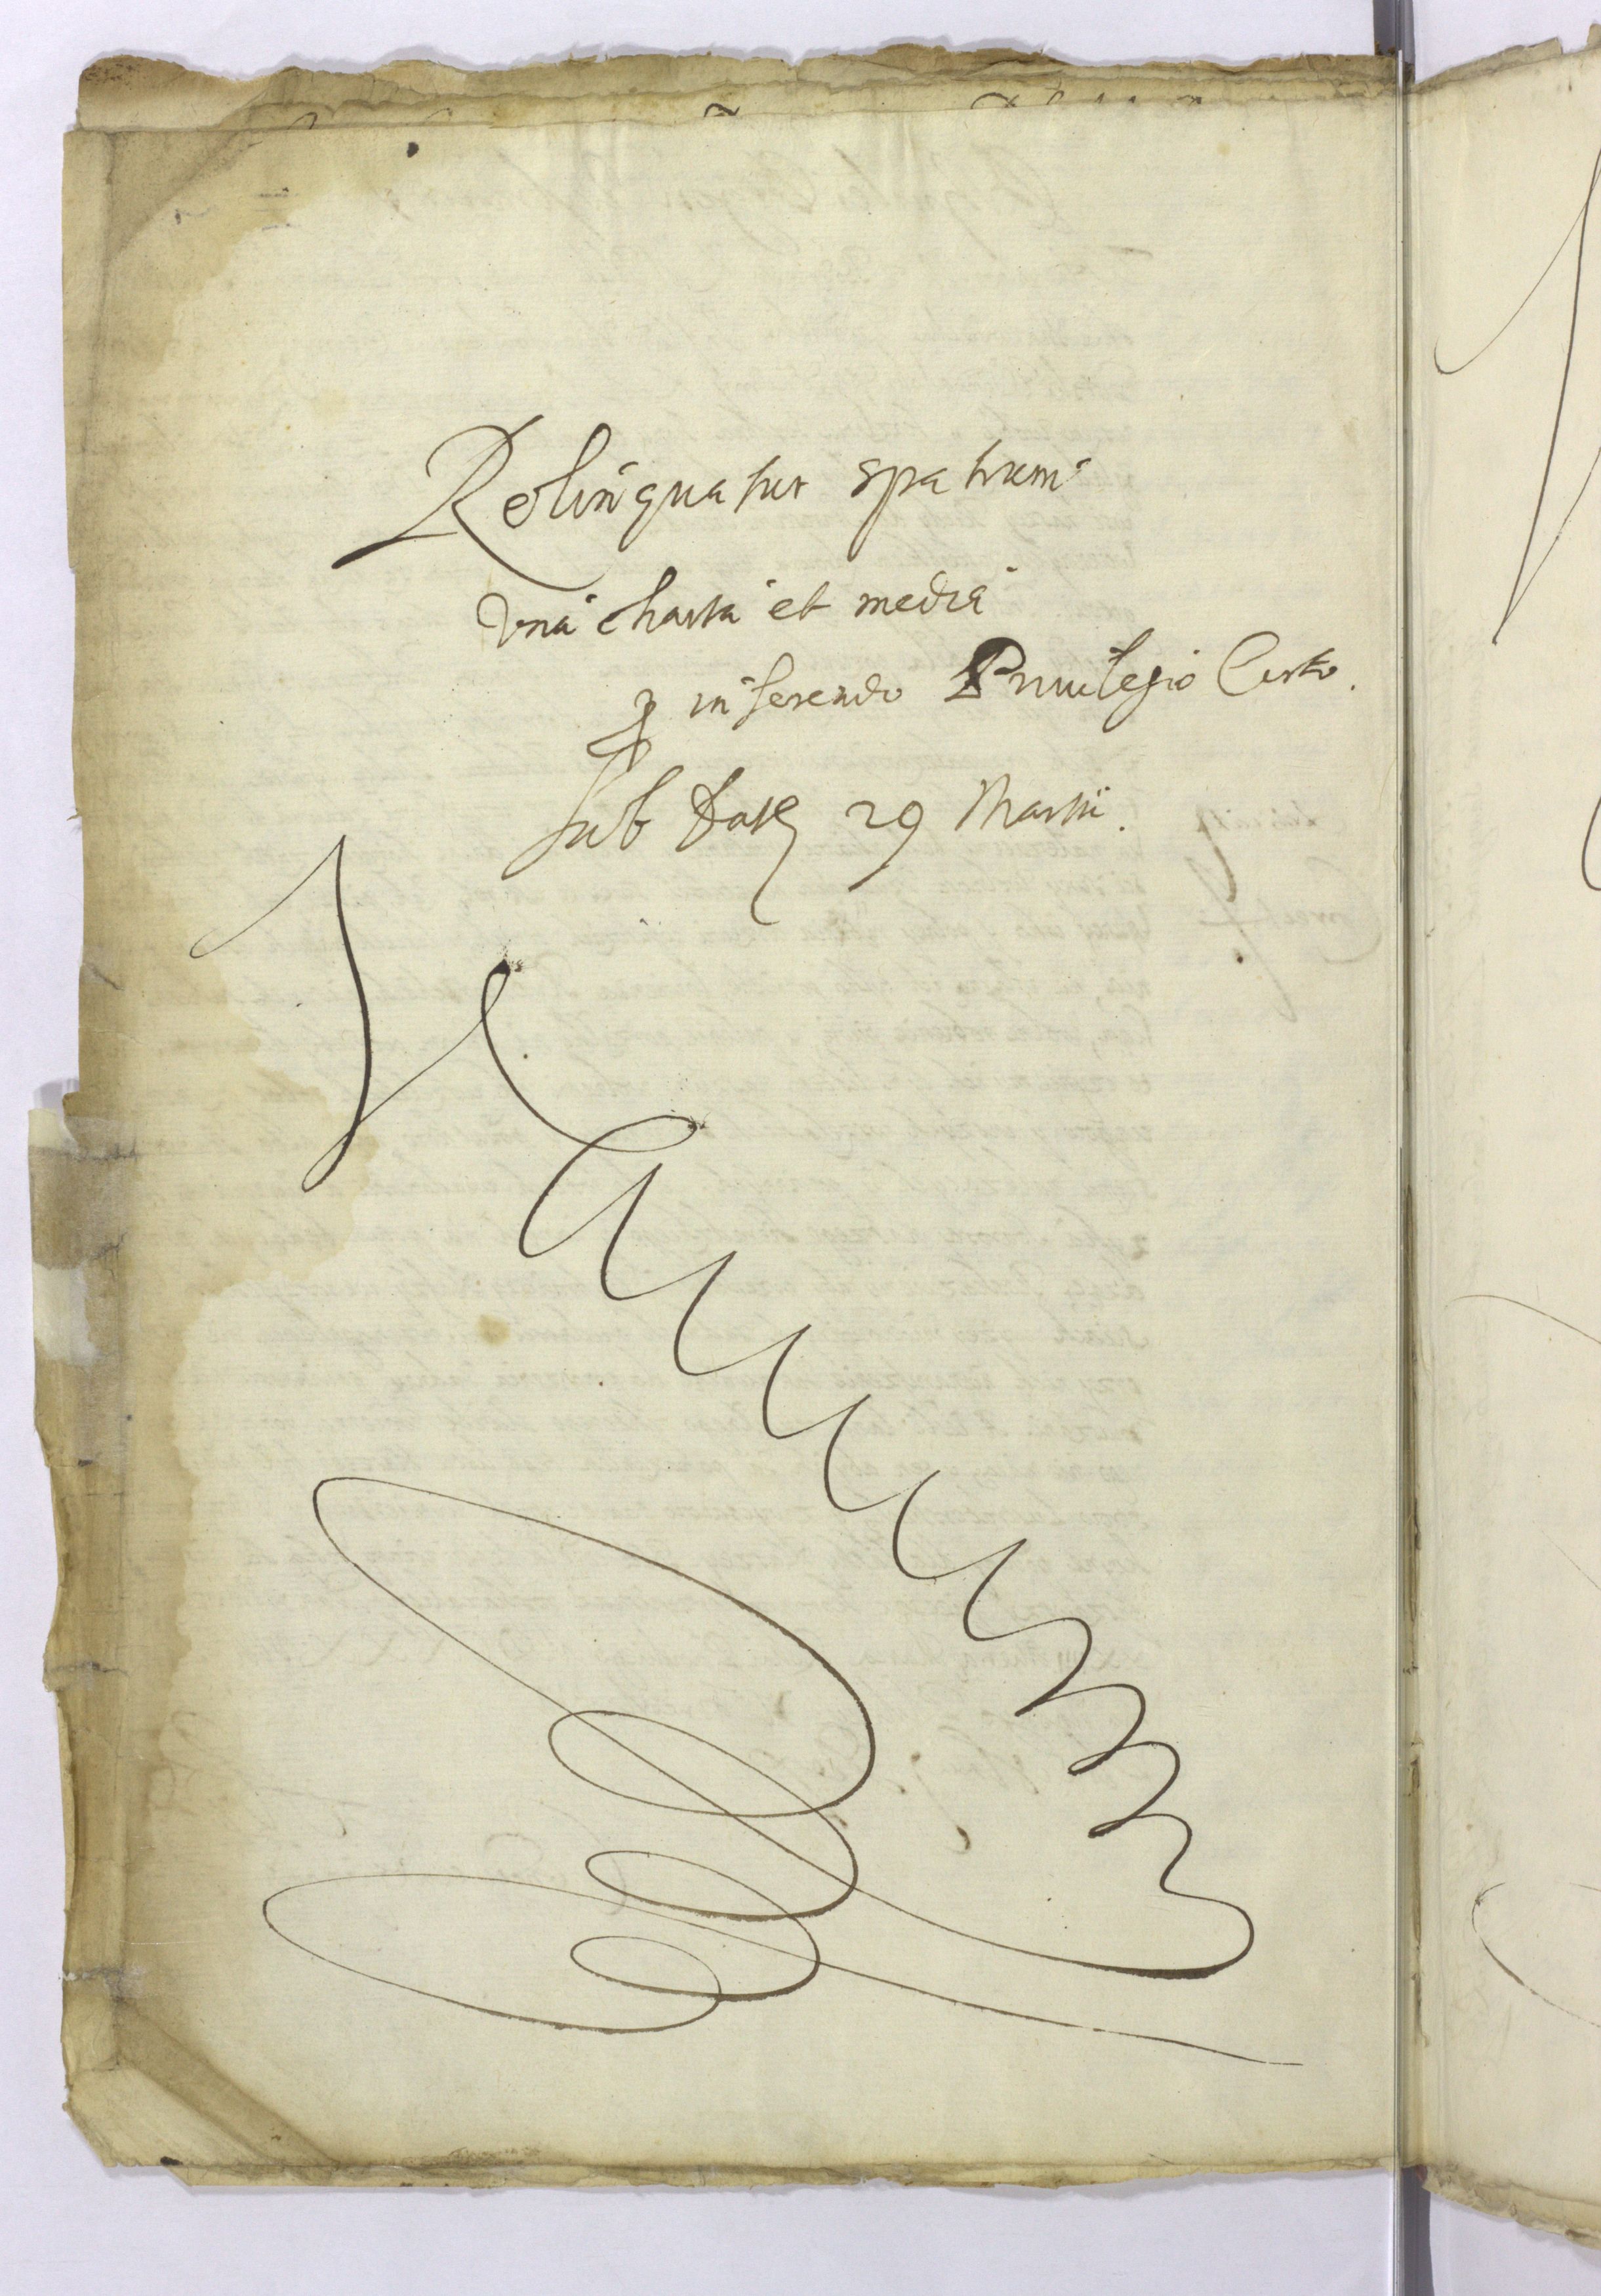 Relinquatur spatium
Vna charta et media
p inserendo Priuilegio Certo.
sub Data 29 Martii.
Vacuum